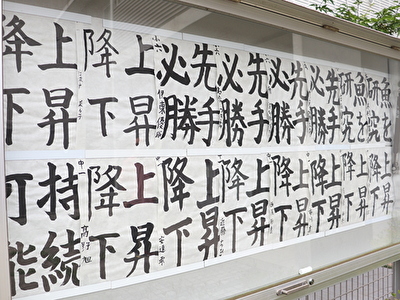 上昇
降下
上昇
降下
先手
必勝
先手
必勝
先手
必勝
魚を
研究
魚を
研究
持続
可能
上昇
降下
上昇
降下
上昇
降下
上昇
降下
上昇
降下
上昇
降下